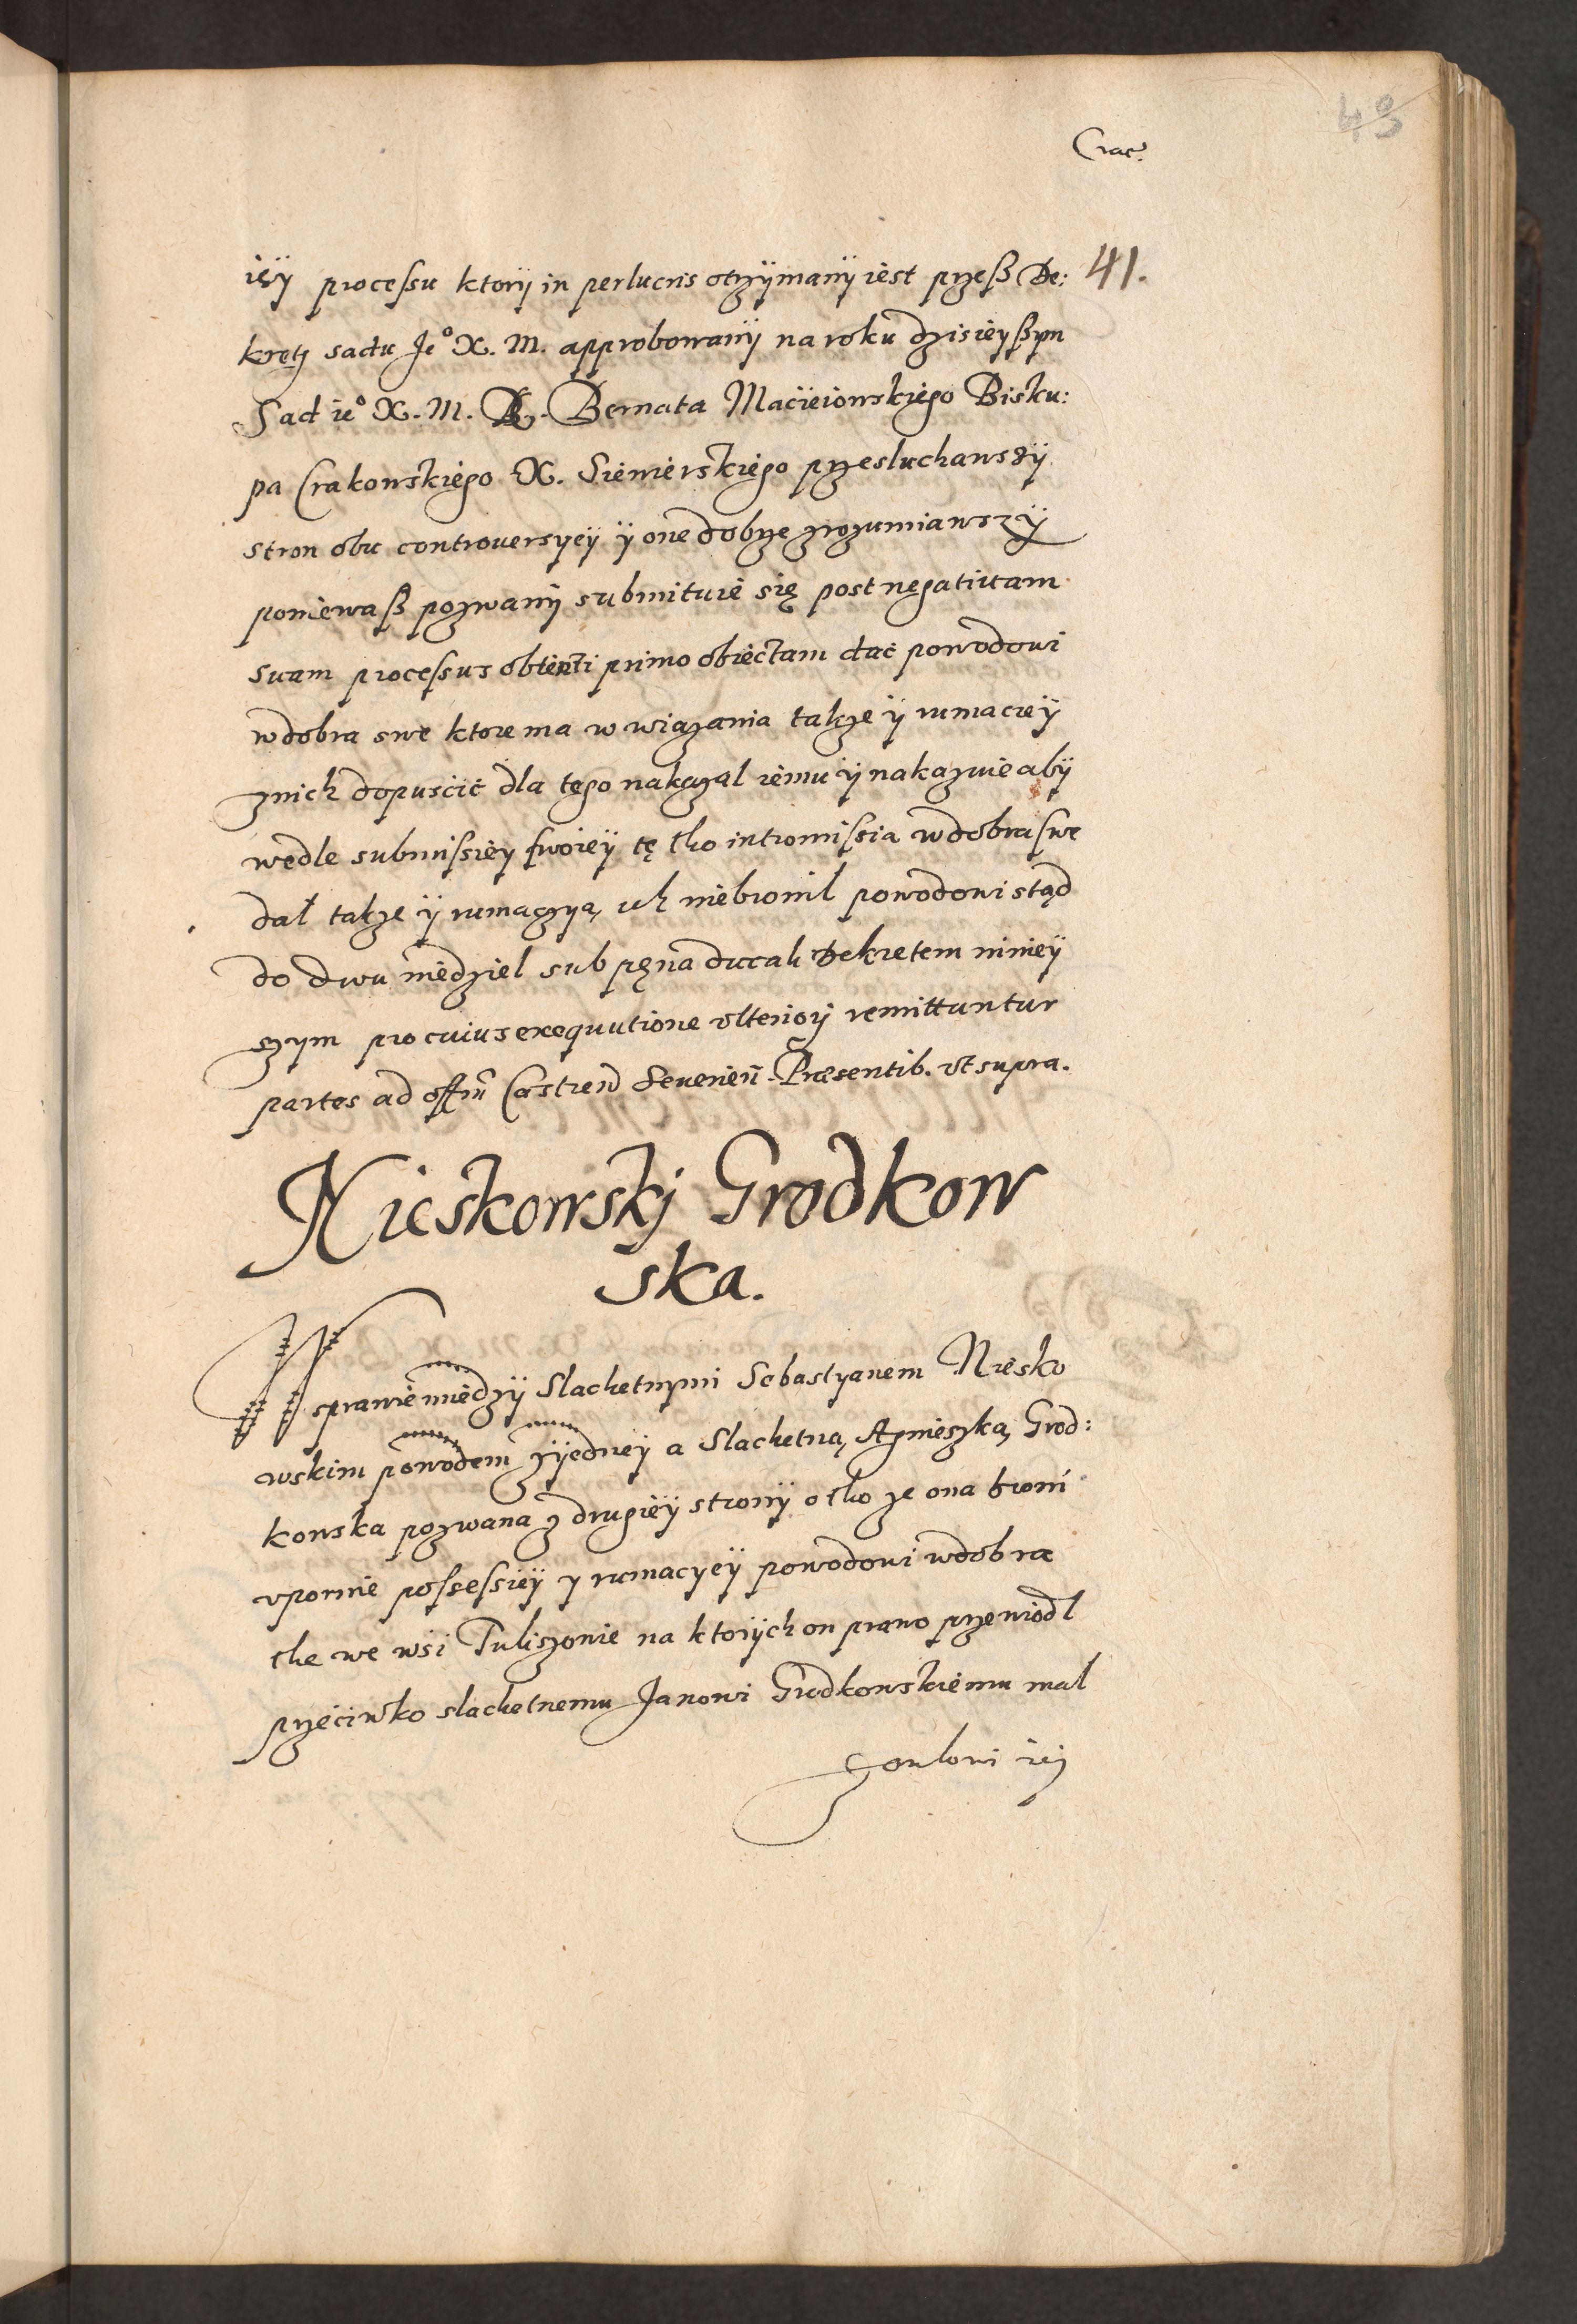 43
Crac.
41.
ięÿ processu ktorÿ in perlucris otrzÿmanÿ iest przesß De:
kretÿ sadu Je° X. M. approbowanÿ na roku dzisieÿßym
Sad ie° X. M. X. Bernata Macieiowskiego Bisku:
pa Crakowskiego X. Siewierskiego przesluchawszÿ
stron obu controuersyeÿ ÿ one dobrze zrozumiawszÿ
poniewaß pozwanÿ submituie się post negatiuam
suam processus obtenti primo obiectam dać powodowi
w dobra swe ktore ma w wiązania także ÿ rumacieÿ
z nich dopuscić dla tego nakazal iemu ÿ nakazuie abÿ
wedle submissieÿ swoieÿ tę tho intromissia w dobra swe
dał także ÿ rumaczyą, ich niebronil powodowi stąd
do dwu niedziel sub pęna ducali Dekretem ninieÿ
szym pro cuius exequutione vlteriorj remittuntur
partes ad offm̃ Castren̄ Seuerien̄. Præsentib. vt supra.
Nieskowskj Grodkow
ska.
W sprawie miedzÿ Slachetnymi Sebastyanem Niesko
wskim powodem z iedneÿ a Slachetną, Agnieszką, Grod:
kowska pozwana z drugieÿ stronÿ o tho ze ona broni
vpornie possessieÿ y rumacyeÿ powodowi w dobra
the we wsi Tuliszowie na ktorÿch on prawo przewiodl
przeciwko slachetnemu Janowi Grodkowskiemu mal
zonkowi ieÿ